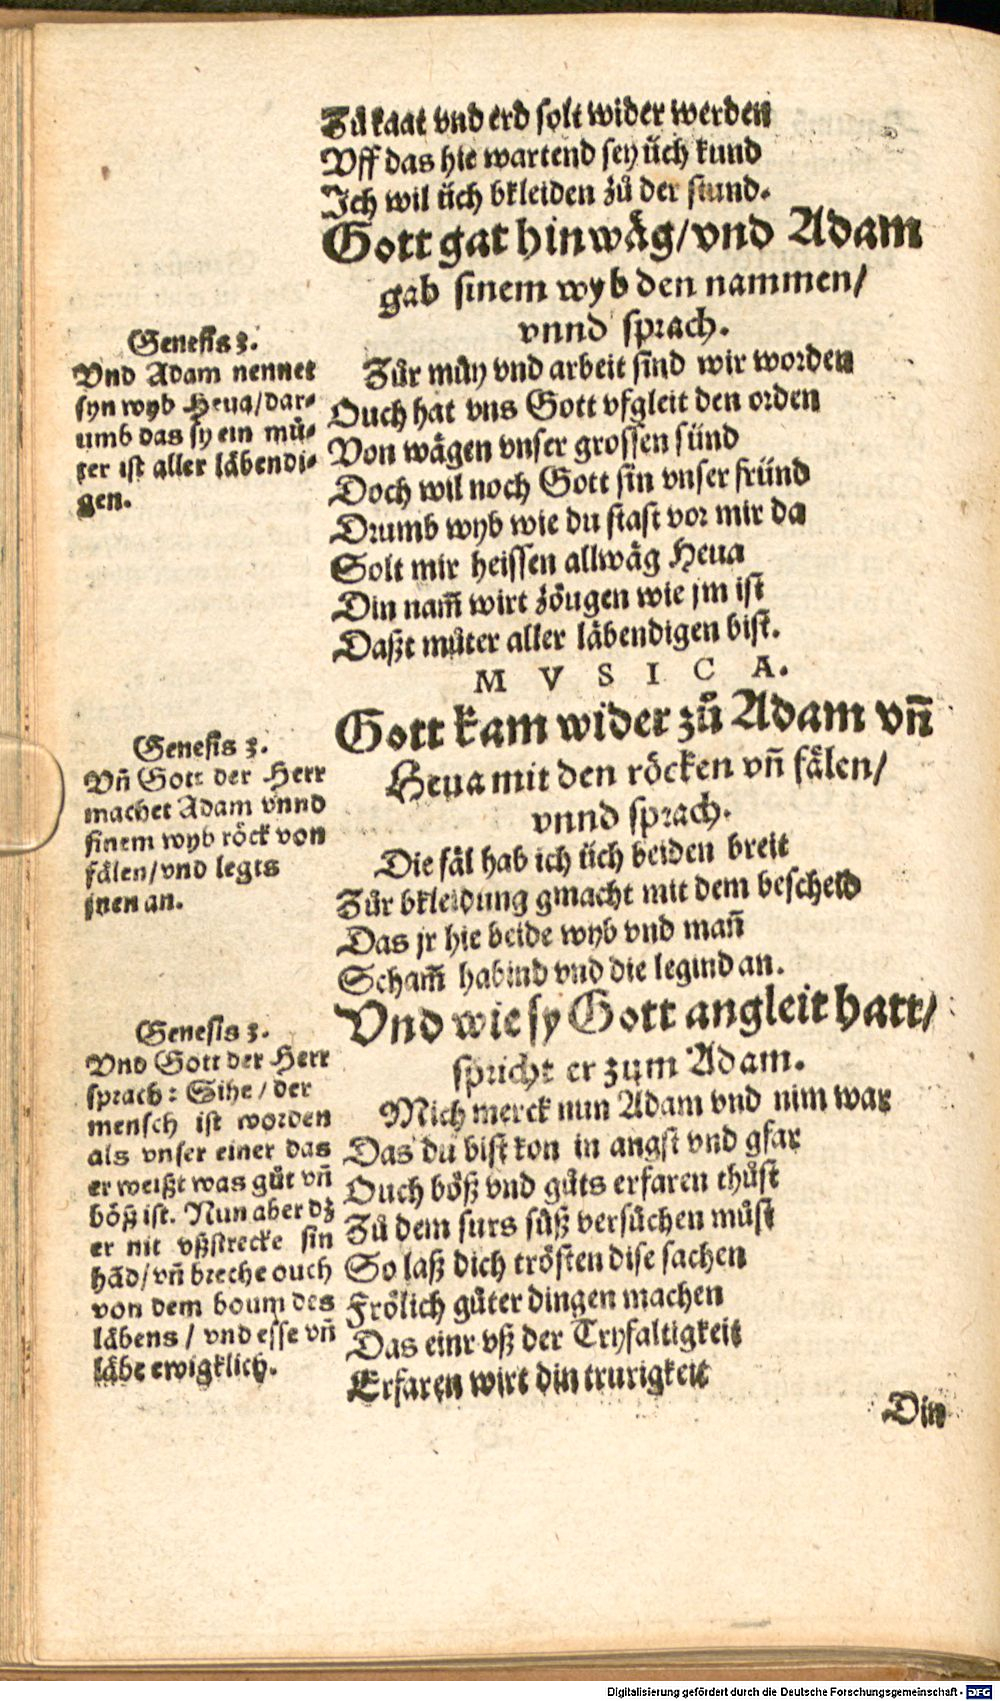 Zů kaat vnd erd solt wider werden
Vff das hie wartend sey üch kund
Ich wil üch bkleiden zů der stund.
Gott gat hinwäg/vnd Adam
gab sinem wyb den nammen/
vnnd sprach.
Zůr müy vnd arbeit sind wir worden
Ouch hat vns Gott vfgleit den orden
Von wägen vnser grossen sünd
Doch wil noch Gott sin vnser fründ
Drumb wyb wie du stast vor mir da
Solt mir heissen allwäg Heua
Din nam̃ wirt zöugen wie jm ist
Daßt můter aller läbendigen bist.
Genesis 3.
Vnd Adam nennet
syn wyb Heua/dar-
umb das sy ein mů-
ter ist aller läbendi-
gen.
M V S I C A.
Gott kam wider zů Adam vñ
Heua mit den röcken vñ fälen/
vnnd sprach.
Die fäl hab ich üch beiden breit
Zůr bkleidung gmacht mit dem bescheid
Das jr hie beide wyb vnd mañ
Scham̃ habind vnd die legind an.
Genesis 3.
Vñ Gott der Herr
machet Adam vnnd
sinem wyb röck von
fälen/vnd legts
jnen an.
Vnd wie sy Gott angleit hatt/
spricht er zum Adam.
Mich merck nun Adam vnd nim war
Das du bist kon in angst vnd gfar
Ouch böß vnd gůts erfaren thůst
Zů dem surs sůß versůchen můst
So laß dich trösten dise sachen
Frölich gůter dingen machen
Das einr vß der Tryfaltigkeit
Erfaren wirt din trurigkeit
Genesis 3.
Vnd Gott der Herr
sprach: Sihe/der
mensch ist worden
als vnser einer das
er weißt was gůt vñ
böß ist. Nun aber dz
er nit vßstrecke sin
hãd/vñ breche ouch
von dem boum des
läbens/vnd esse vñ
läbe ewigklich.
Din
Digitalisierung gefördert durch die Deutsche Forschungsgemeinschaft - DFG